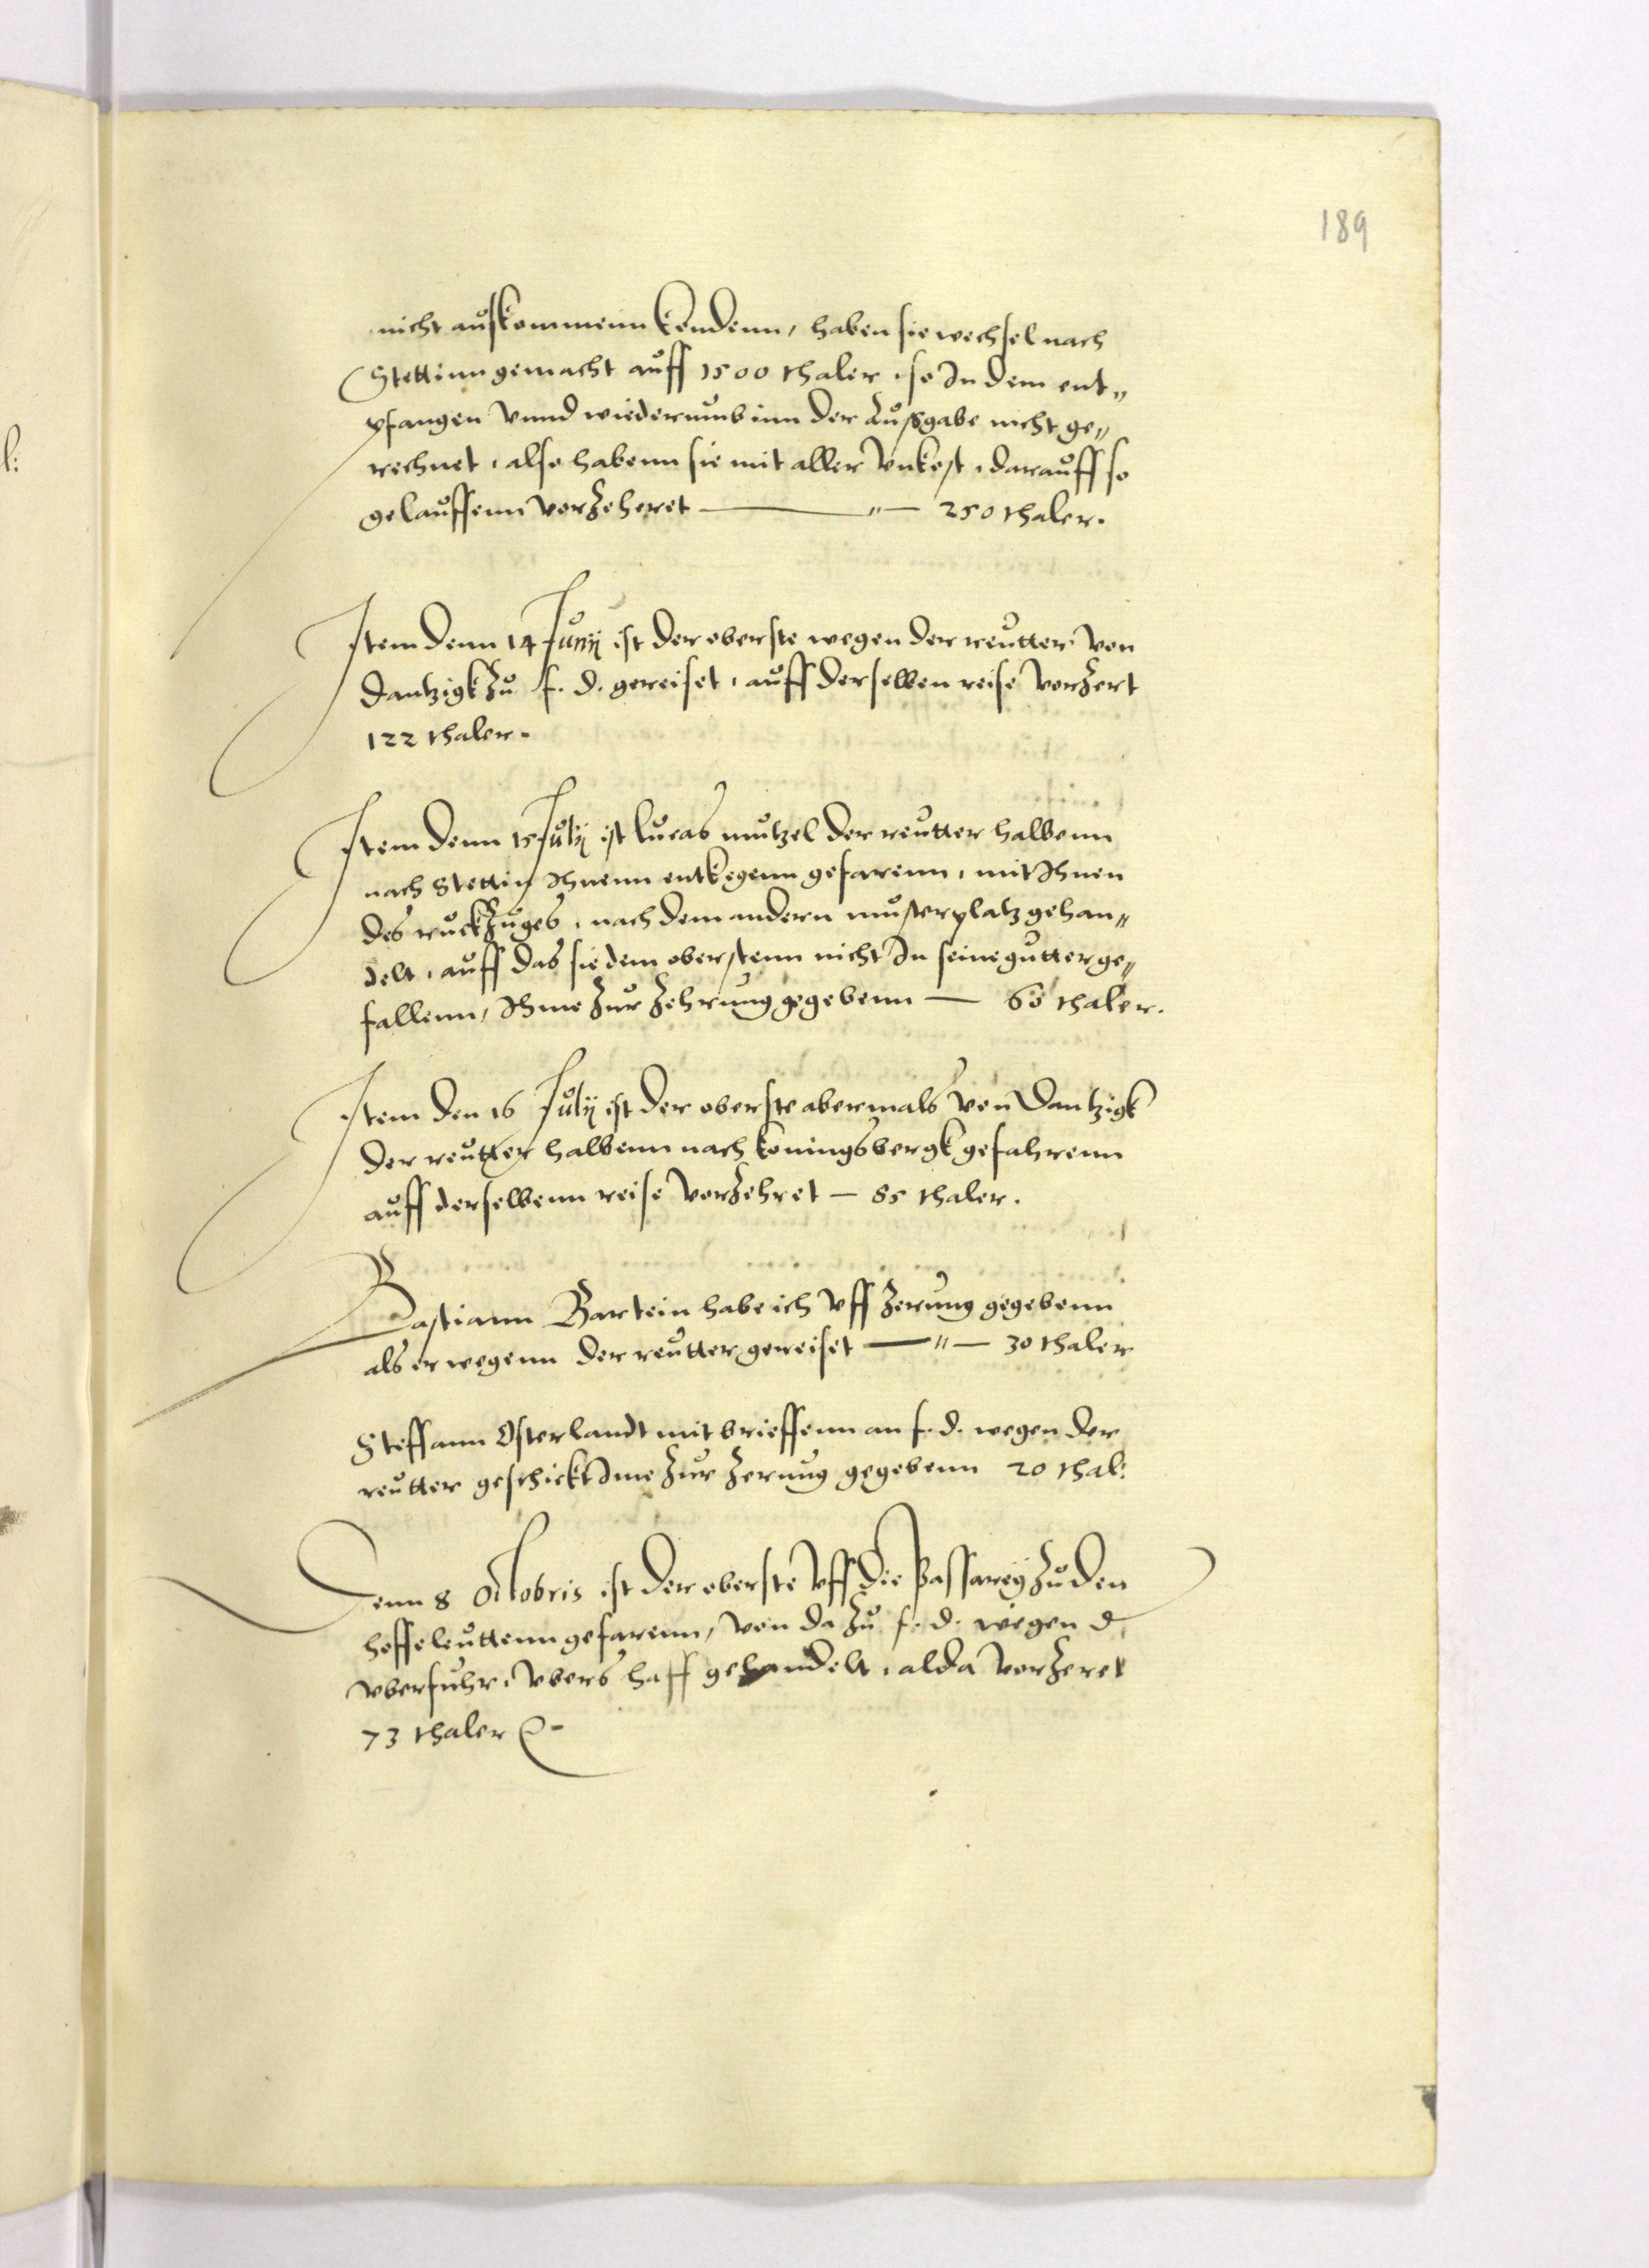 189
nicht auskommenn kondenn, haben sie wechsel nach
Stettinn gemacht auff 1500 thaler, so In dem ent„
pfangen vnnd wiederumb inn der Außgabe nicht ge„
rechnet, also habenn sie mit aller vnkost, darauff so
gelauffenn vorzeheret — „ — 250 thaler.
Item denn 14 Junij ist der oberste wegen der reutter von
Dantzigk zu f. d. gereiset, auff derselben reise vorzert
122 thaler.
Item denn 15 Julij ist lucas mutzel der reutter halbenn
nach Stettin Ihnenn entkegenn gefarenn, mit Ihnen
des ruckzuges, nach dem andern musterplatz gehan„
delt, auff das sie dem oberstenn nicht In seine gutter ge„
fallenn, Ihme zur zehrung gegebenn — 60 thaler.
Item den 16 Julij ist der oberste abermals von Dantzigk
der reutter halbenn nach koningsbergk gefahrenn
auff derselbenn reise vorzehret — 85 thaler.
Bastiann Bartein habe ich vff zerung gegebenn
als er wegenn der reutter gereiset — „ — 30 thaler
Steffann Osterlandt mit brieffenn an f. d. wegen der
reutter geschickt Ime zur zerung gegebenn 20 thal:
Denn 8 Octobris ist der oberste vff die Passarey zu den
hoffeleuttenn gefarenn, von da zu f. d. wegen d
vberfuhr, vbers haff gehandelt, alda vorzeret
73 thaler
l: